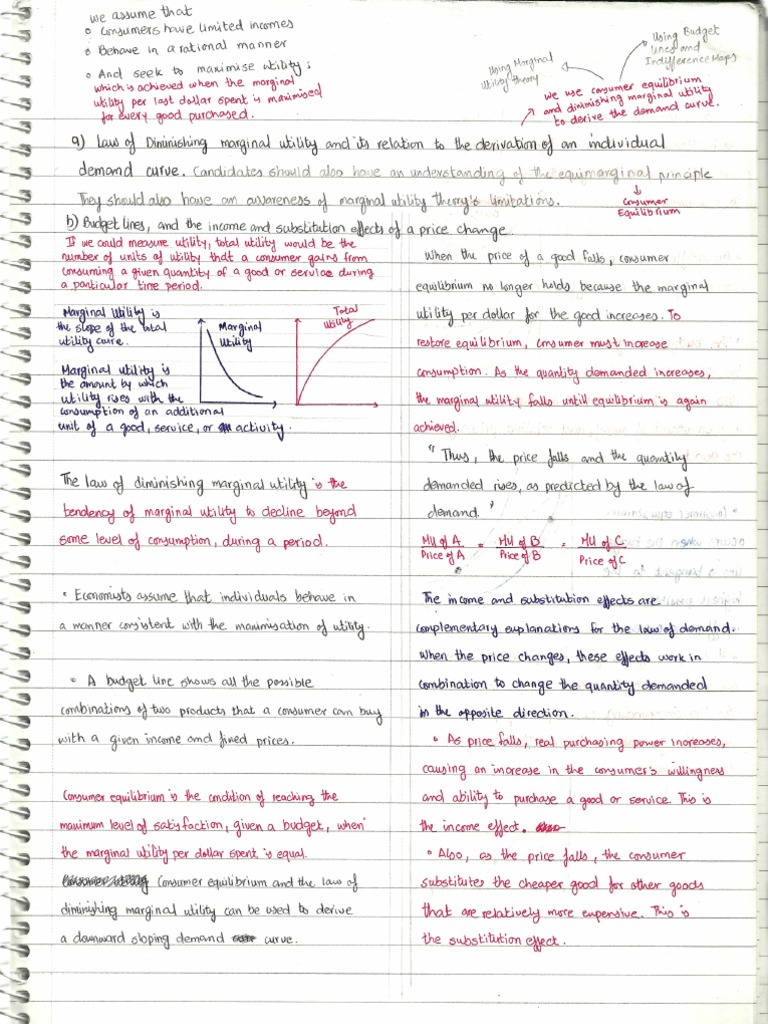 we assume that
• Consumers have limited incomes
• Behave in a rational manner
• And seek to maximise utility;
which is achieved when the marginal
utility per last dollar spent is maximised
for every good purchased.
Using Marginal
Utility theory
Using Budget
Lines and
Indifference Maps
we use consumer equilibrium
and diminishing marginal utility
to derive the demand curve.
a) Law of Diminishing marginal utility and its relation to the derivation of an individual
demand curve. Candidates should also have an understanding of the equimarginal principle
They should also have an awareness of marginal utility theory's limitations.
Consumer
Equilibrium
b) Budget lines, and the income and substitution effects of a price change.
If we could measure utility, total utility would be the
number of units of utility that a consumer gains from
consuming a given quantity of a good or service during
a particular time period.
Marginal Utility is
the slope of the total
utility curve.
Marginal Utility is
the amount by which
utility rises with the
consumption of an additional
unit of a good, service, or activity.
Marginal
Utility
Total
Utility
The law of diminishing marginal utility is the
tendency of marginal utility to decline beyond
some level of consumption, during a period.
• Economists assume that individuals behave in
a manner consistent with the maximisation of utility.
• A budget line shows all the possible
combinations of two products that a consumer can buy
with a given income and fixed prices.
Consumer equilibrium is the condition of reaching the
maximum level of satisfaction, given a budget, when
the marginal utility per dollar spent is equal.
Consumer equilibrium and the law of
diminishing marginal utility can be used to derive
a downward sloping demand curve.
When the price of a good falls, consumer
equilibrium no longer holds because the marginal
utility per dollar for the good increases. To
restore equilibrium, consumer must increase
consumption. As the quantity demanded increases,
the marginal utility falls until equilibrium is again
achieved.
" Thus, the price falls and the quantity
demanded rises, as predicted by the law of
demand. "
MU of A = MU of B = MU of C
Price of A Price of B Price of C
The income and substitution effects are
complementary explanations for the law of demand.
When the price changes, these effects work in
combination to change the quantity demanded
in the opposite direction.
• As price falls, real purchasing power increases,
causing an increase in the consumer's willingness
and ability to purchase a good or service. This is
the income effect.
• Also, as the price falls, the consumer
substitutes the cheaper good for other goods
that are relatively more expensive. This is
the substitution effect.